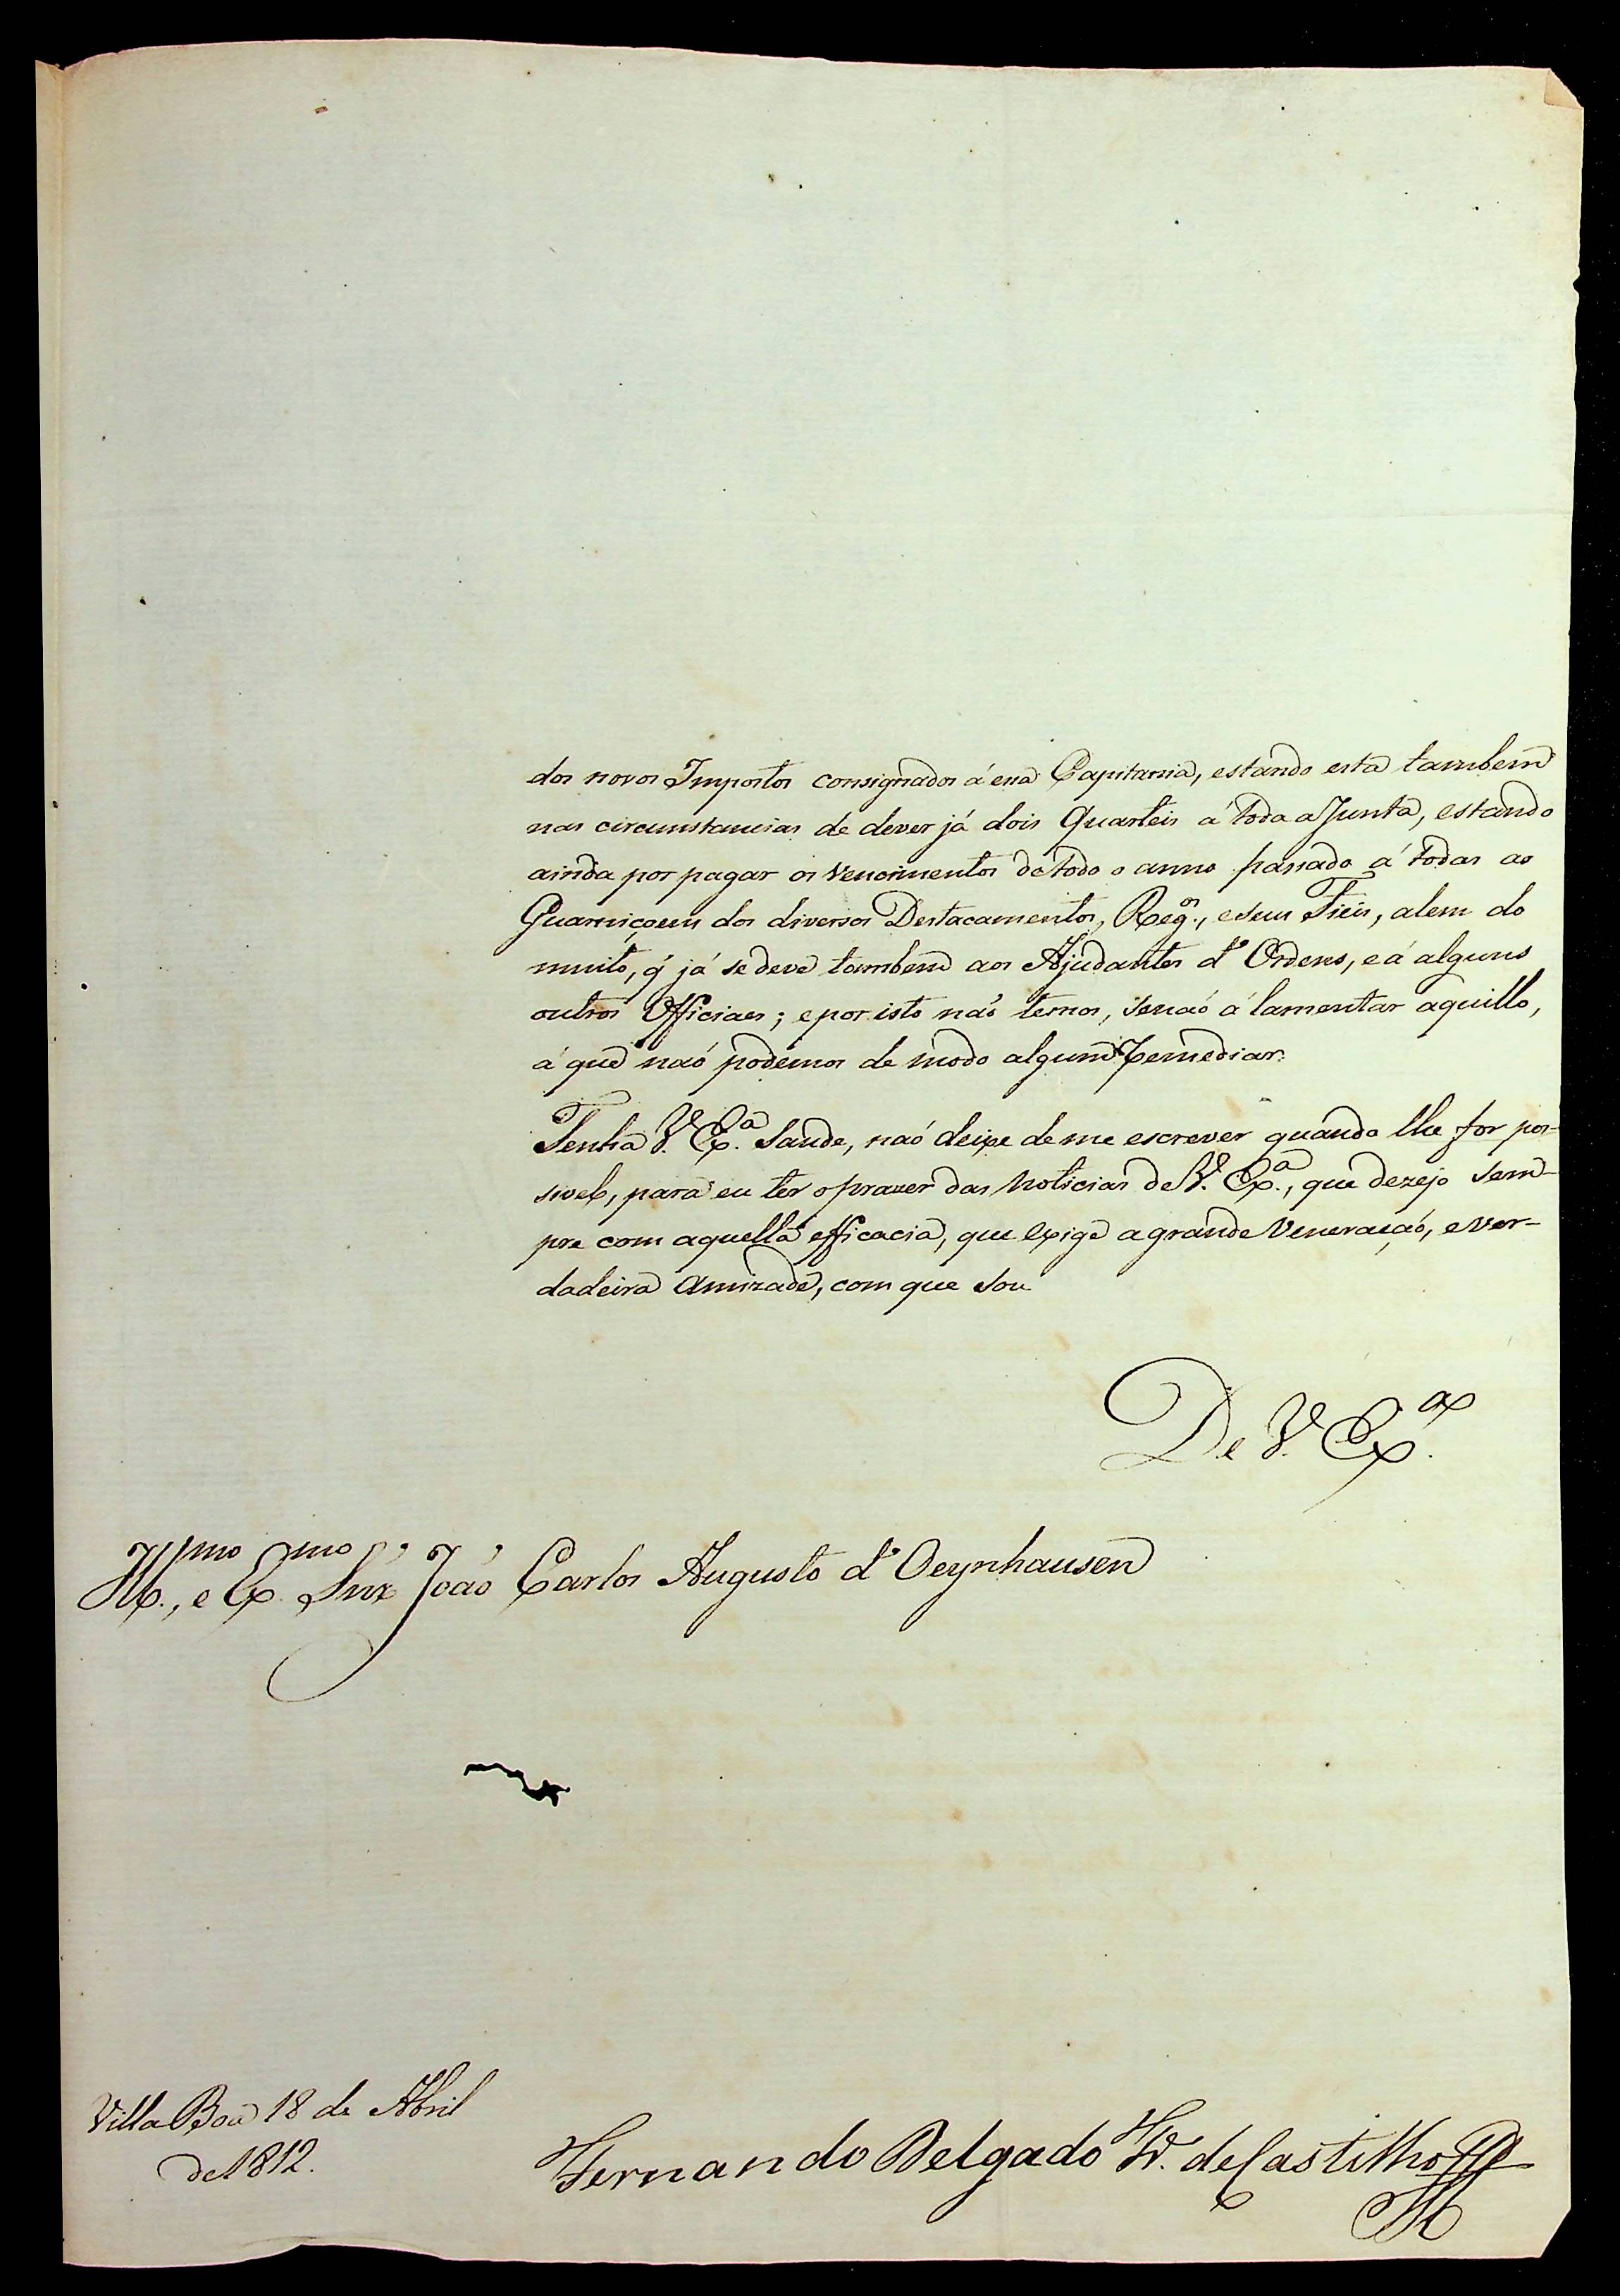 dos novos Impostos consignados á essa Capitania, estando esta tambem
nas circunstancias de dever já dois Quarteis á toda a Junta, estando
ainda por pagar os Vencimentos de todo o anno passado á todas as
Guarniçoens dos diversos Destacamentos, Reg.os, e seus Fieis, alem do
muito, q̃ já se deve tambem aos Ajudantes d'Ordens, e á alguns
outros Officiaes; e por isto naó temos, senaó á lamentar aquillo,
á que naó podemos de modo algum remediar.
Tenha V. Ex.a Saude, naó deixe de me escrever quando lhe for pos-
sivel, para eu ter o prazer das Noticias de V. Ex.a, que dezejo sem-
pre com aquella efficacia, que exige a grande Veneraçaó, e ver-
dadeira Amizade, com que sou
De V. Ex.a
Ill.mo, e Ex.mo Snr̃ Joaó Carlos Augusto d'Oeynhausen
Villa Boa 18 de Abril
de 1812.
Fernando Delgado Fr. de Castilho